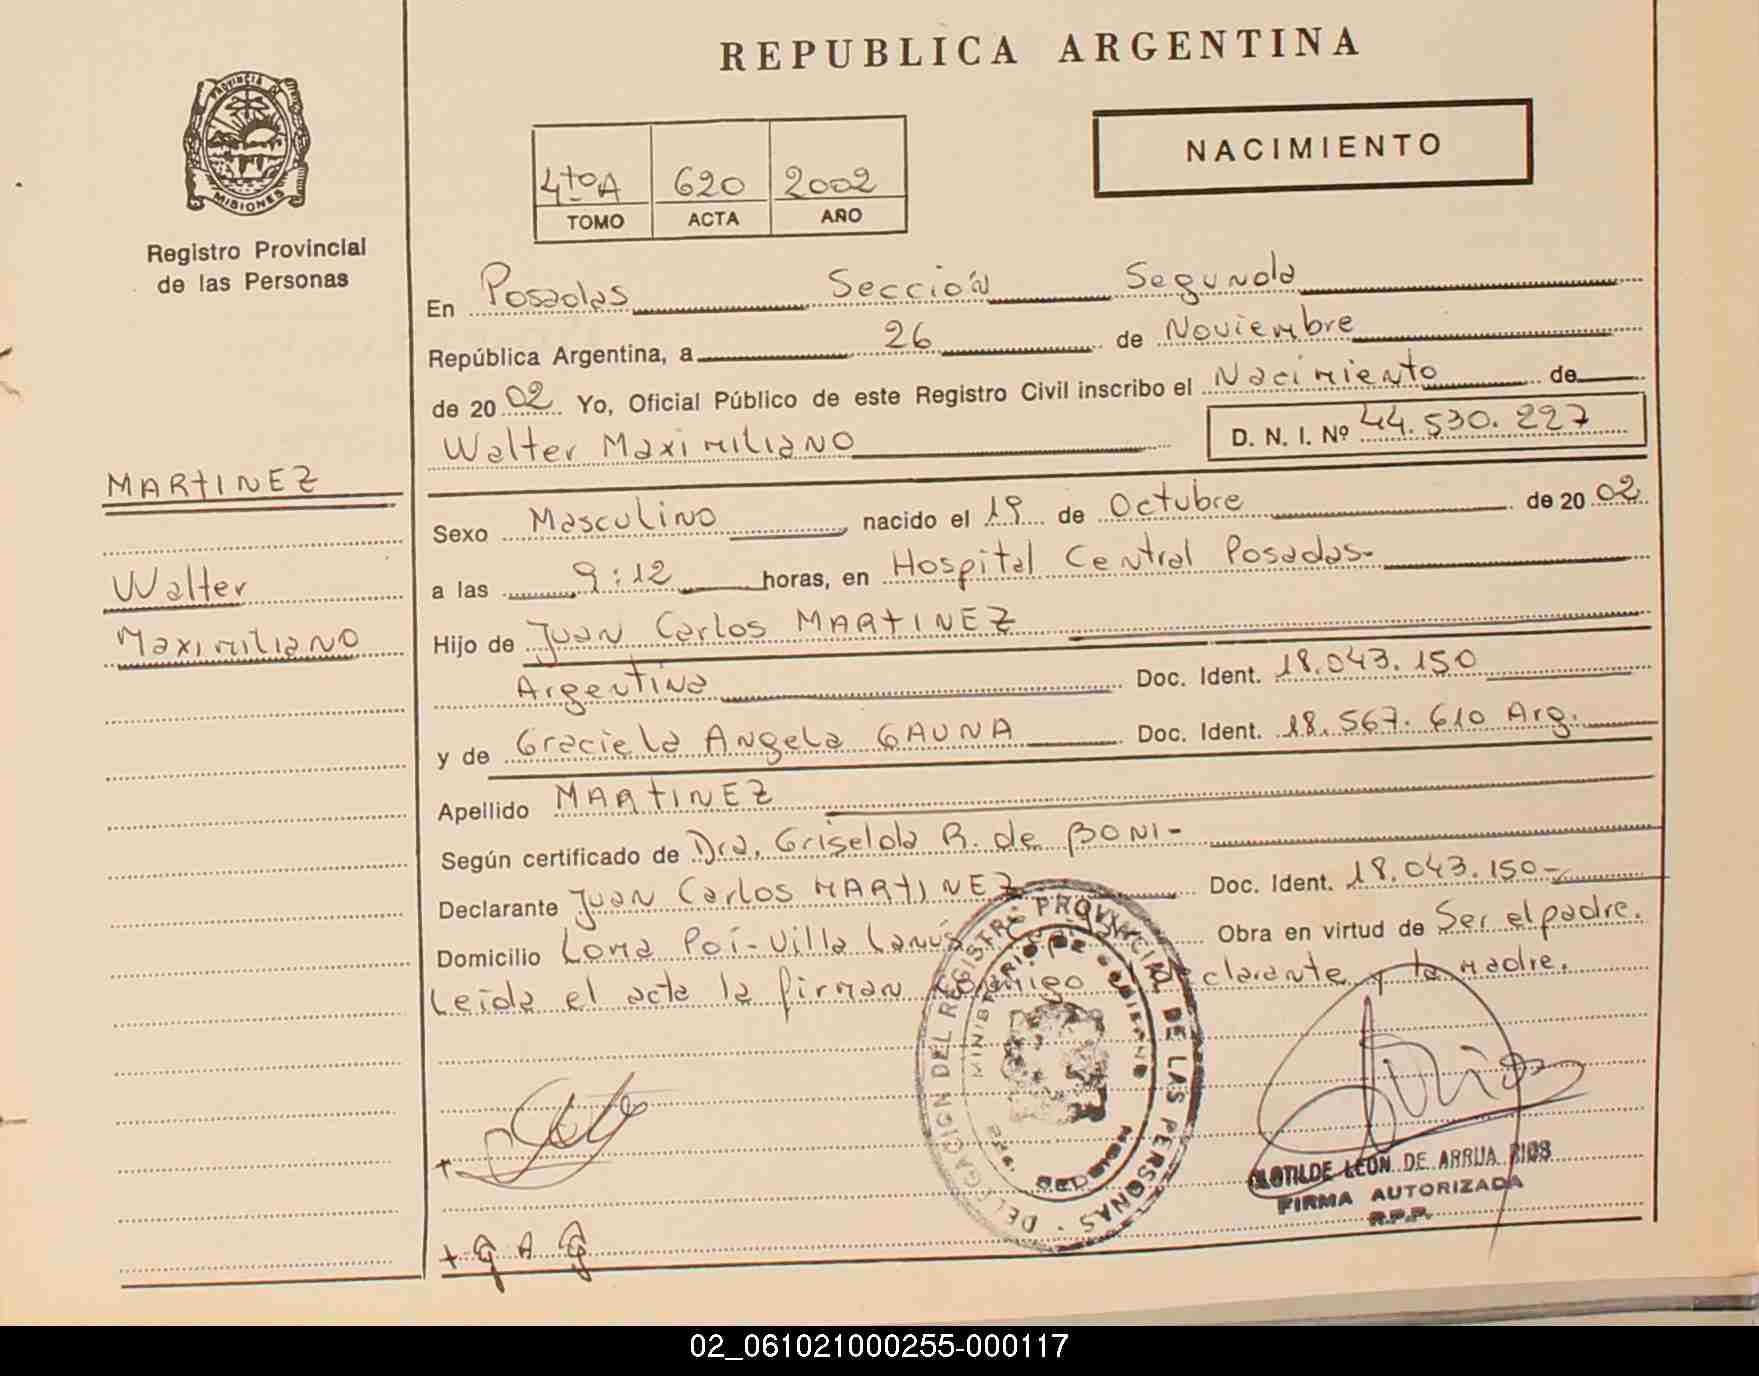 REPUBLICA ARGENTINA
PROVINCIA DE MISIONES
Registro Provincial
de las Personas
NACIMIENTO
4to A 620 2002
TOMO ACTA AÑO
En Posadas Sección Segunda
República Argentina, a 26 de Noviembre
de 20 02 Yo, Oficial Público de este Registro Civil inscribo el Nacimiento de
Walter Maximiliano D. N. I. Nº 44.530.227
MARTINEZ
Walter
Maximiliano
Sexo Masculino nacido el 19 de Octubre de 20 02
a las 9:12 horas, en Hospital Central Posadas-
Hijo de Juan Carlos MARTINEZ
Argentina Doc. Ident. 18.043.150
y de Graciela Angela GAUNA Doc. Ident. 18.567.610 Arg.
Apellido MARTINEZ
Según certificado de Dra. Griselda R. de BONI-
Declarante Juan Carlos MARTINEZ Doc. Ident. 18.043.150-
Domicilio Loma Poi-Villa Lanús Obra en virtud de Ser el padre.
Leida el acta la firman conmigo declarante y la madre.
DELEGACION DEL REGISTRO PROVINCIAL DE LAS PERSONAS
MINISTERIO DE GOBIERNO
CLOTILDE LEON DE ARRUA RIOS
FIRMA AUTORIZADA
R.P.P.
+ G A G
02_061021000255-000117